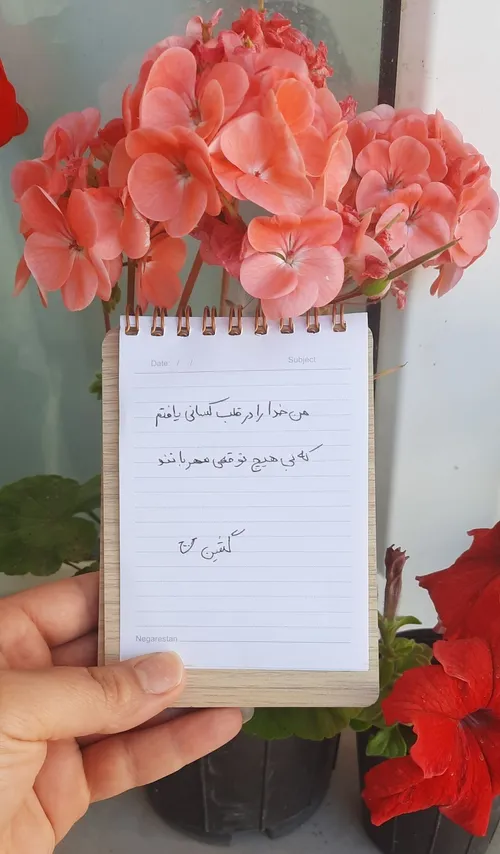 Date: / / Subject:
من خدا را در قلب کسانی یافتم
که بی هیچ توقعی مهربانند
Negarestan